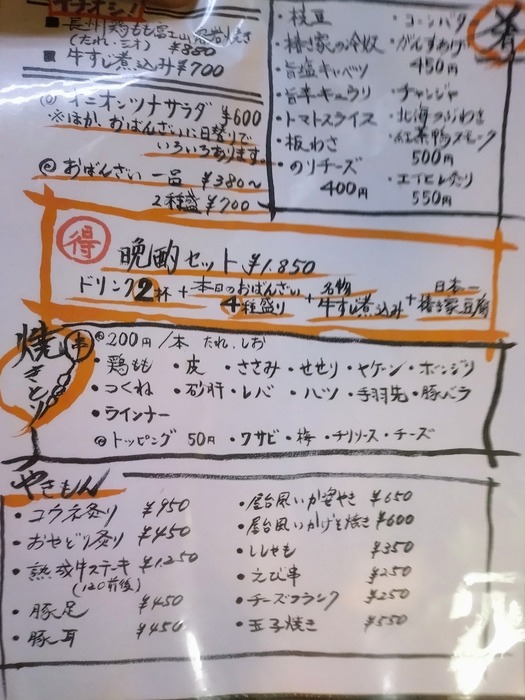 イチオシ!
■ 長州鶏もも富士山溶岩焼き
(たれ・三才) ¥880
■ 牛すじ煮込み ¥700
◎ オニオンツナサラダ ¥600
※ほか、おばんざいに日替りで
いろいろあります
◎ おばんざい 一品 ¥380〜
2種盛 ¥700
肴
・枝豆
・椿き家の冷奴
・旨塩キャベツ
・旨辛キュウリ
・トマトスライス
・板わさ
・のりチーズ
400円
・コーンバタ
・がんすあげ
450円
・チャンジャ
・北海つぶわさ
・紅茶鴨スモーク
500円
・エイヒレたたり
550円
得 晩酌セット ¥1.850
ドリンク2杯 + 本日のおばんざい4種盛り + 名物牛すじ煮込み + 日本一椿き家豆腐
焼きとり 串
◎ 200円/本 たれ、しお
・鶏もも ・皮 ・ささみ ・せせり ・ヤゲン ・ボンジリ
・つくね ・砂肝 ・レバ ・ハツ ・手羽先 ・豚バラ
・ラインナー
◎ トッピング 50円 ・ワサビ ・梅 ・チリソース ・チーズ
やきもん
・コウネ炙り ¥950
・おやどり炙り ¥450
・熟成牛ステーキ ¥1.250
(120前後)
・豚足 ¥450
・豚耳 ¥450
・屋台風いか姿やき ¥650
・屋台風いかげそ焼き ¥600
・ししゃも ¥350
・えび串 ¥250
・チーズフランク ¥250
・玉子焼き ¥550